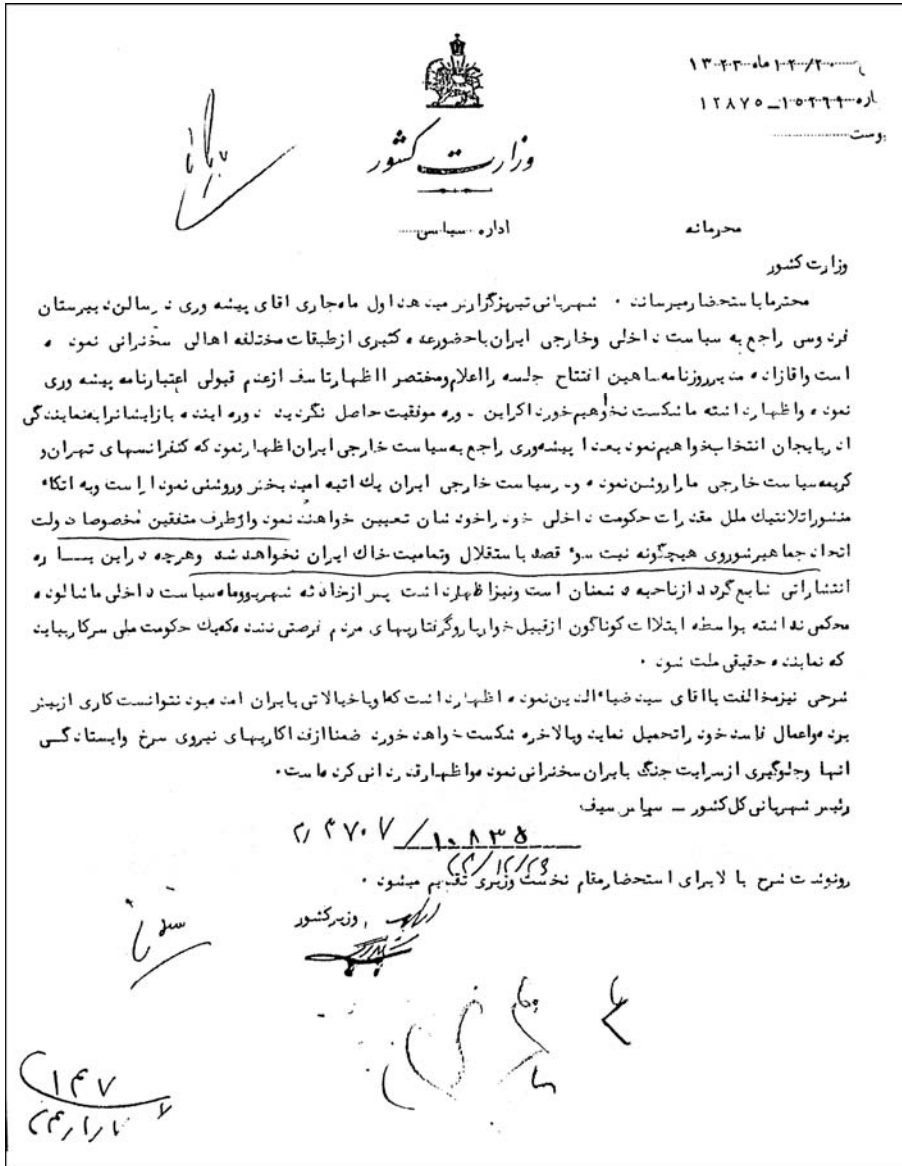 ۲۰/۱۲/ ماه ۱۳۲۳
۱۵۲۶۹ـ۱۲۸۷۵
وست
وزارت کشور
اداره سیاسی
محرمانه
وزارت کشور
محترما باستحضار میرساند ۰ شهربانی تبریز گزارش میدهد اول ماه جاری اقای پیشه وری در سالن دبیرستان
فردوسی راجع به سیاست داخلی وخارجی ایران باحضور عده کثیری ازطبقات مختلفه اهالی سخنرانی نموده
است واقازاده مدیر روزنامه شاهین افتتاح جلسه رااعلام ومختصر ااظهارتاسف ازعدم قبولی اعتبارنامه پیشه وری
نموده واظهارداشته ماشکست نخواهیم خورد اکراین دوره موفقیت حاصل نگردید دوره اینده بازایشانرابه نمایندگی
اذربایجان انتخاب خواهیم نمود بعدا پیشه وری راجع به سیاست خارجی ایران اظهارنمود که کنفرانسهای تهران و
کریمه سیاست خارجی ماراروشن نموده ودرسیاست خارجی ایران یك اتیه امید بخش وروشنی نمودار است وبه اتکاء
منشوراتلانتیك ملل مقدرات حکومت داخلی خود راخودشان تعیین خواهند نمود وازطرف متفقین مخصوصا دولت
اتحاد جماهیرشوروی هیچگونه نیت سوء قصد باستقلال وتمامیت خاك ایران نخواهد شد وهرچه دراین بــــاره
انتشاراتی شایع گردد ازناحیه دشمنان است ونیزاظهارداشت پس ازحادثه شهریورماه سیاست داخلی ماشالوده
محکمی نداشته بواسطه ابتلاات کوناگون ازقبیل خوارباروگرفتاریهای مردم فرصتی نشده که یك حکومت ملی سرکاربیاید
که نماینده حقیقی ملت شود ۰
شرحی نیزمخالفت بااقای سیدضیاءالدین نموده اظهارداشت که اوباخیالاتی بایران امده بود نتوانست کاری ازپیش
برده واعمال فاسد خود راتحمیل نماید وبالاخره شکست خواهد خورد ضمنا ازفداکاریهای نیروی سرخ وایستادگــی
انها وجلوگیری ازسرایت جنگ بایران سخنرانی نموده واظهارقدردانی کرده است۰
رئیس شهربانی کل کشور ــ سرپاس سیف
۱۰۸۳۵
۲۳/۱۲/۲۹
رونوشت شرح بالابرای استحضارمقام نخست وزیری تقدیم میشود ۰
وزیرکشور
۱۴۷